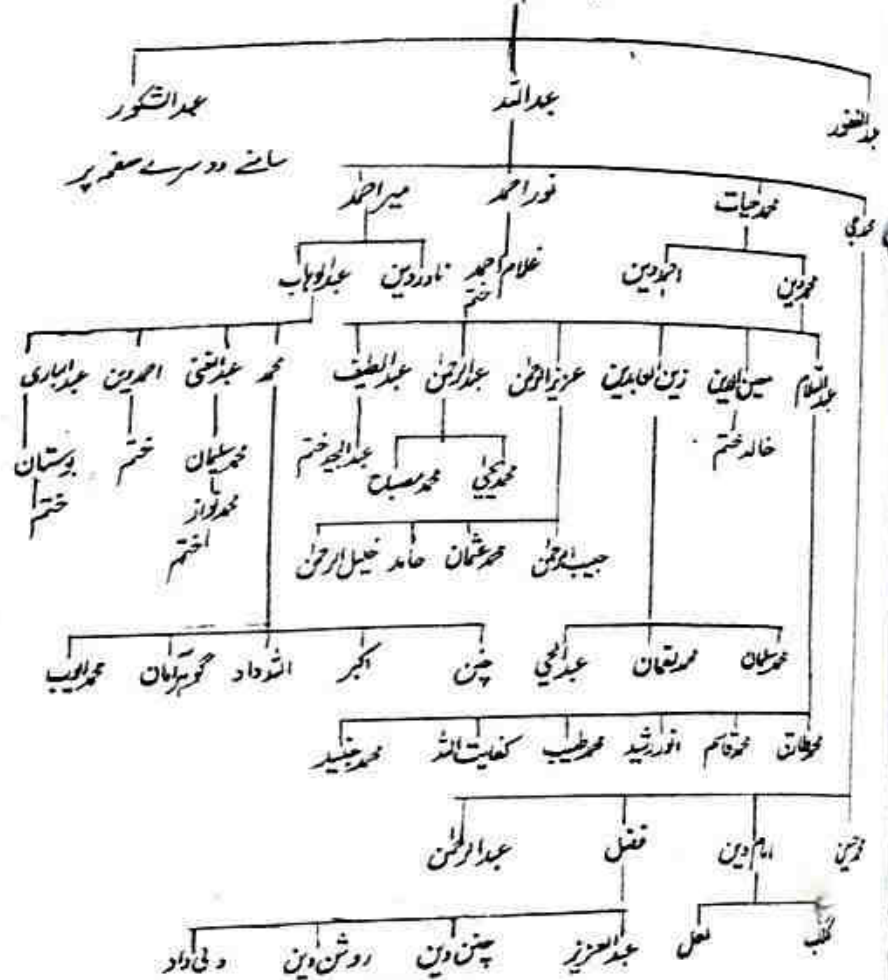 عبدالغفور عبداللہ عبدالشکور
سامنے دوسرے صفحہ پر
محمد حیات نور احمد میر احمد
محمد دین احمد دین غلام احمد نادر دین عبدالوہاب
ختم
عبدالسلام معین الدین زین العابدین عزیز الرحمٰن عبدالرحمٰن عبداللطیف محمد عبدالغنی احمد دین عبدالباری
خالد ختم محمد یحیٰی محمد مصباح ختم محمد سلیمان ختم بوستان
محمد نواز ختم
ختم
حبیب الرحمٰن محمد عثمان حامد خلیل الرحمٰن
محمد سلمان محمد نعمان عبدالحی چنن اکبر اللہ داد گوہرامان محمد ایوب
محمد طارق محمد قاسم انور رشید محمد طیب کفایت اللہ محمد جنید
امام دین فضل عبدالرحمٰن
گلاب لعل عبدالعزیز چنن دین روشن دین ولی داد